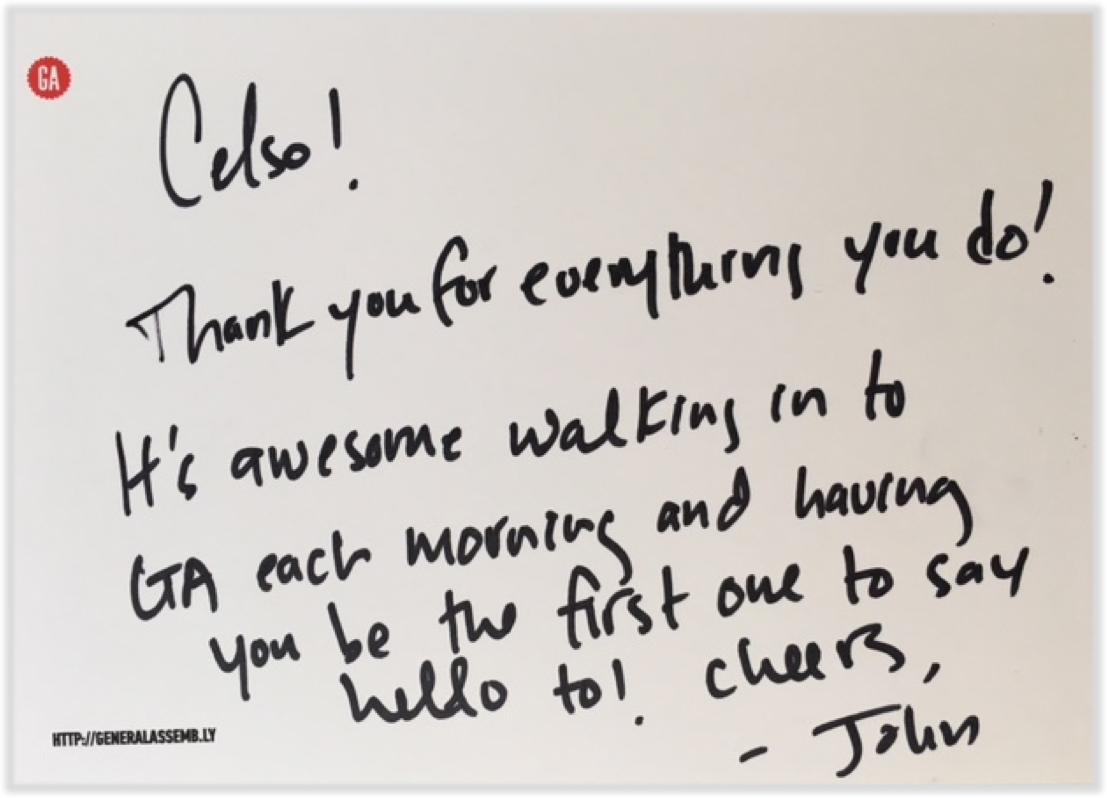 GA
Celso!
Thank you for everything you do!
It's awesome walking in to
GA each morning and having
you be the first one to say
hello to! cheers,
- John
HTTP://GENERALASSEMB.LY